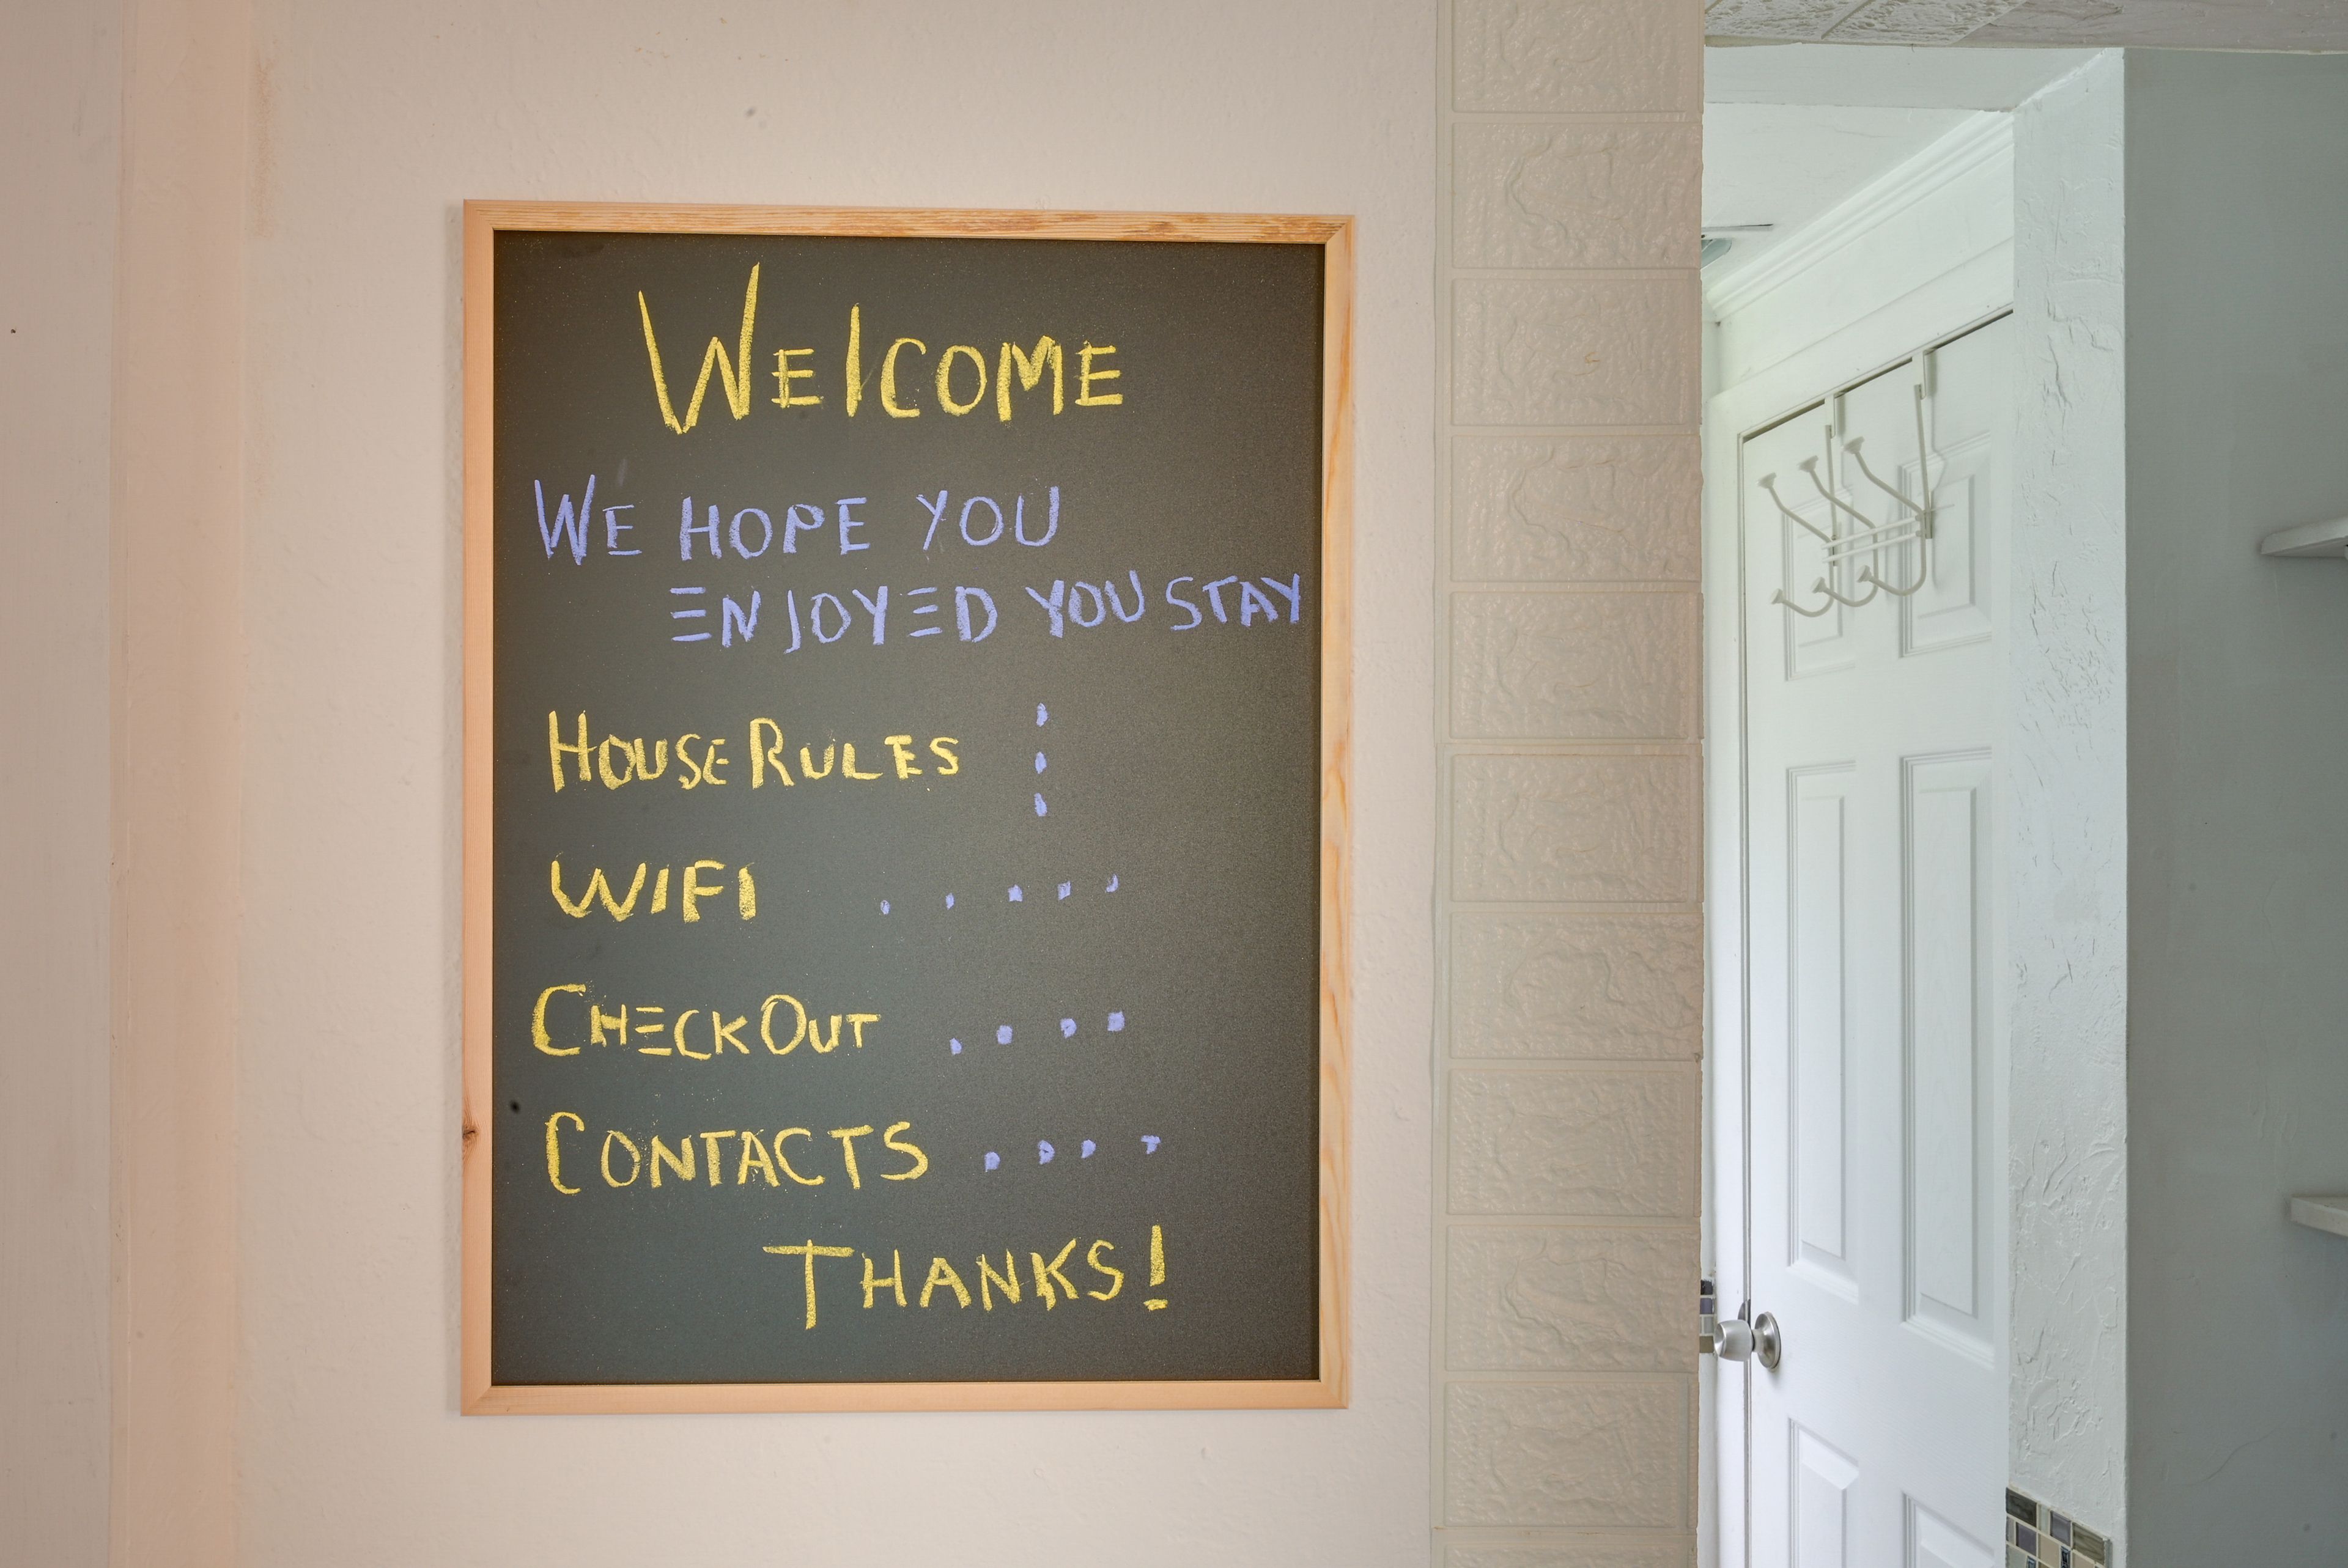 WELCOME
WE HOPE YOU
ENJOYED YOU STAY
HOUSE RULES :
WIFI .....
CHECK OUT ....
CONTACTS ....
THANKS!